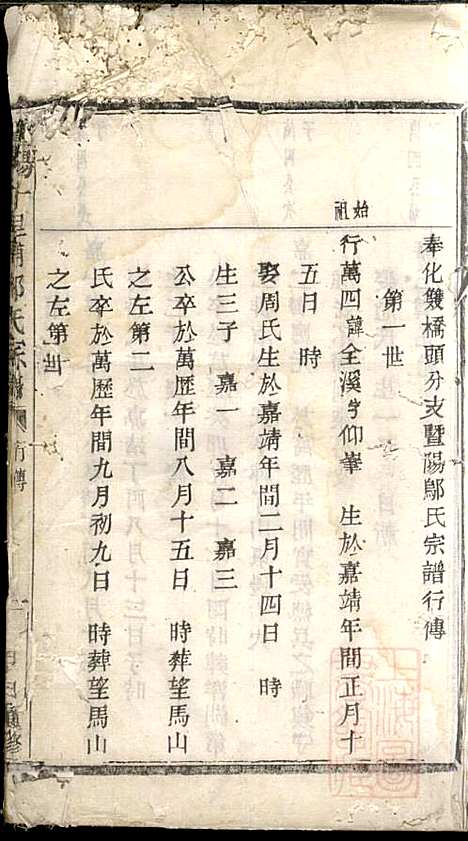 奉化雙橋頭分支暨陽鄔氏宗譜行傳
第一世
始祖
行萬四諱全溪字仰峯　生於嘉靖年間正月十
五日　時
娶周氏生於嘉靖年間二月十四日　時
生三子　嘉一　嘉二　嘉三
公卒於萬歷年間八月十五日　時葬望馬山
之左第二
氏卒於萬歷年間九月初九日　時葬望馬山
之左第世
十里
氏宗
行傳